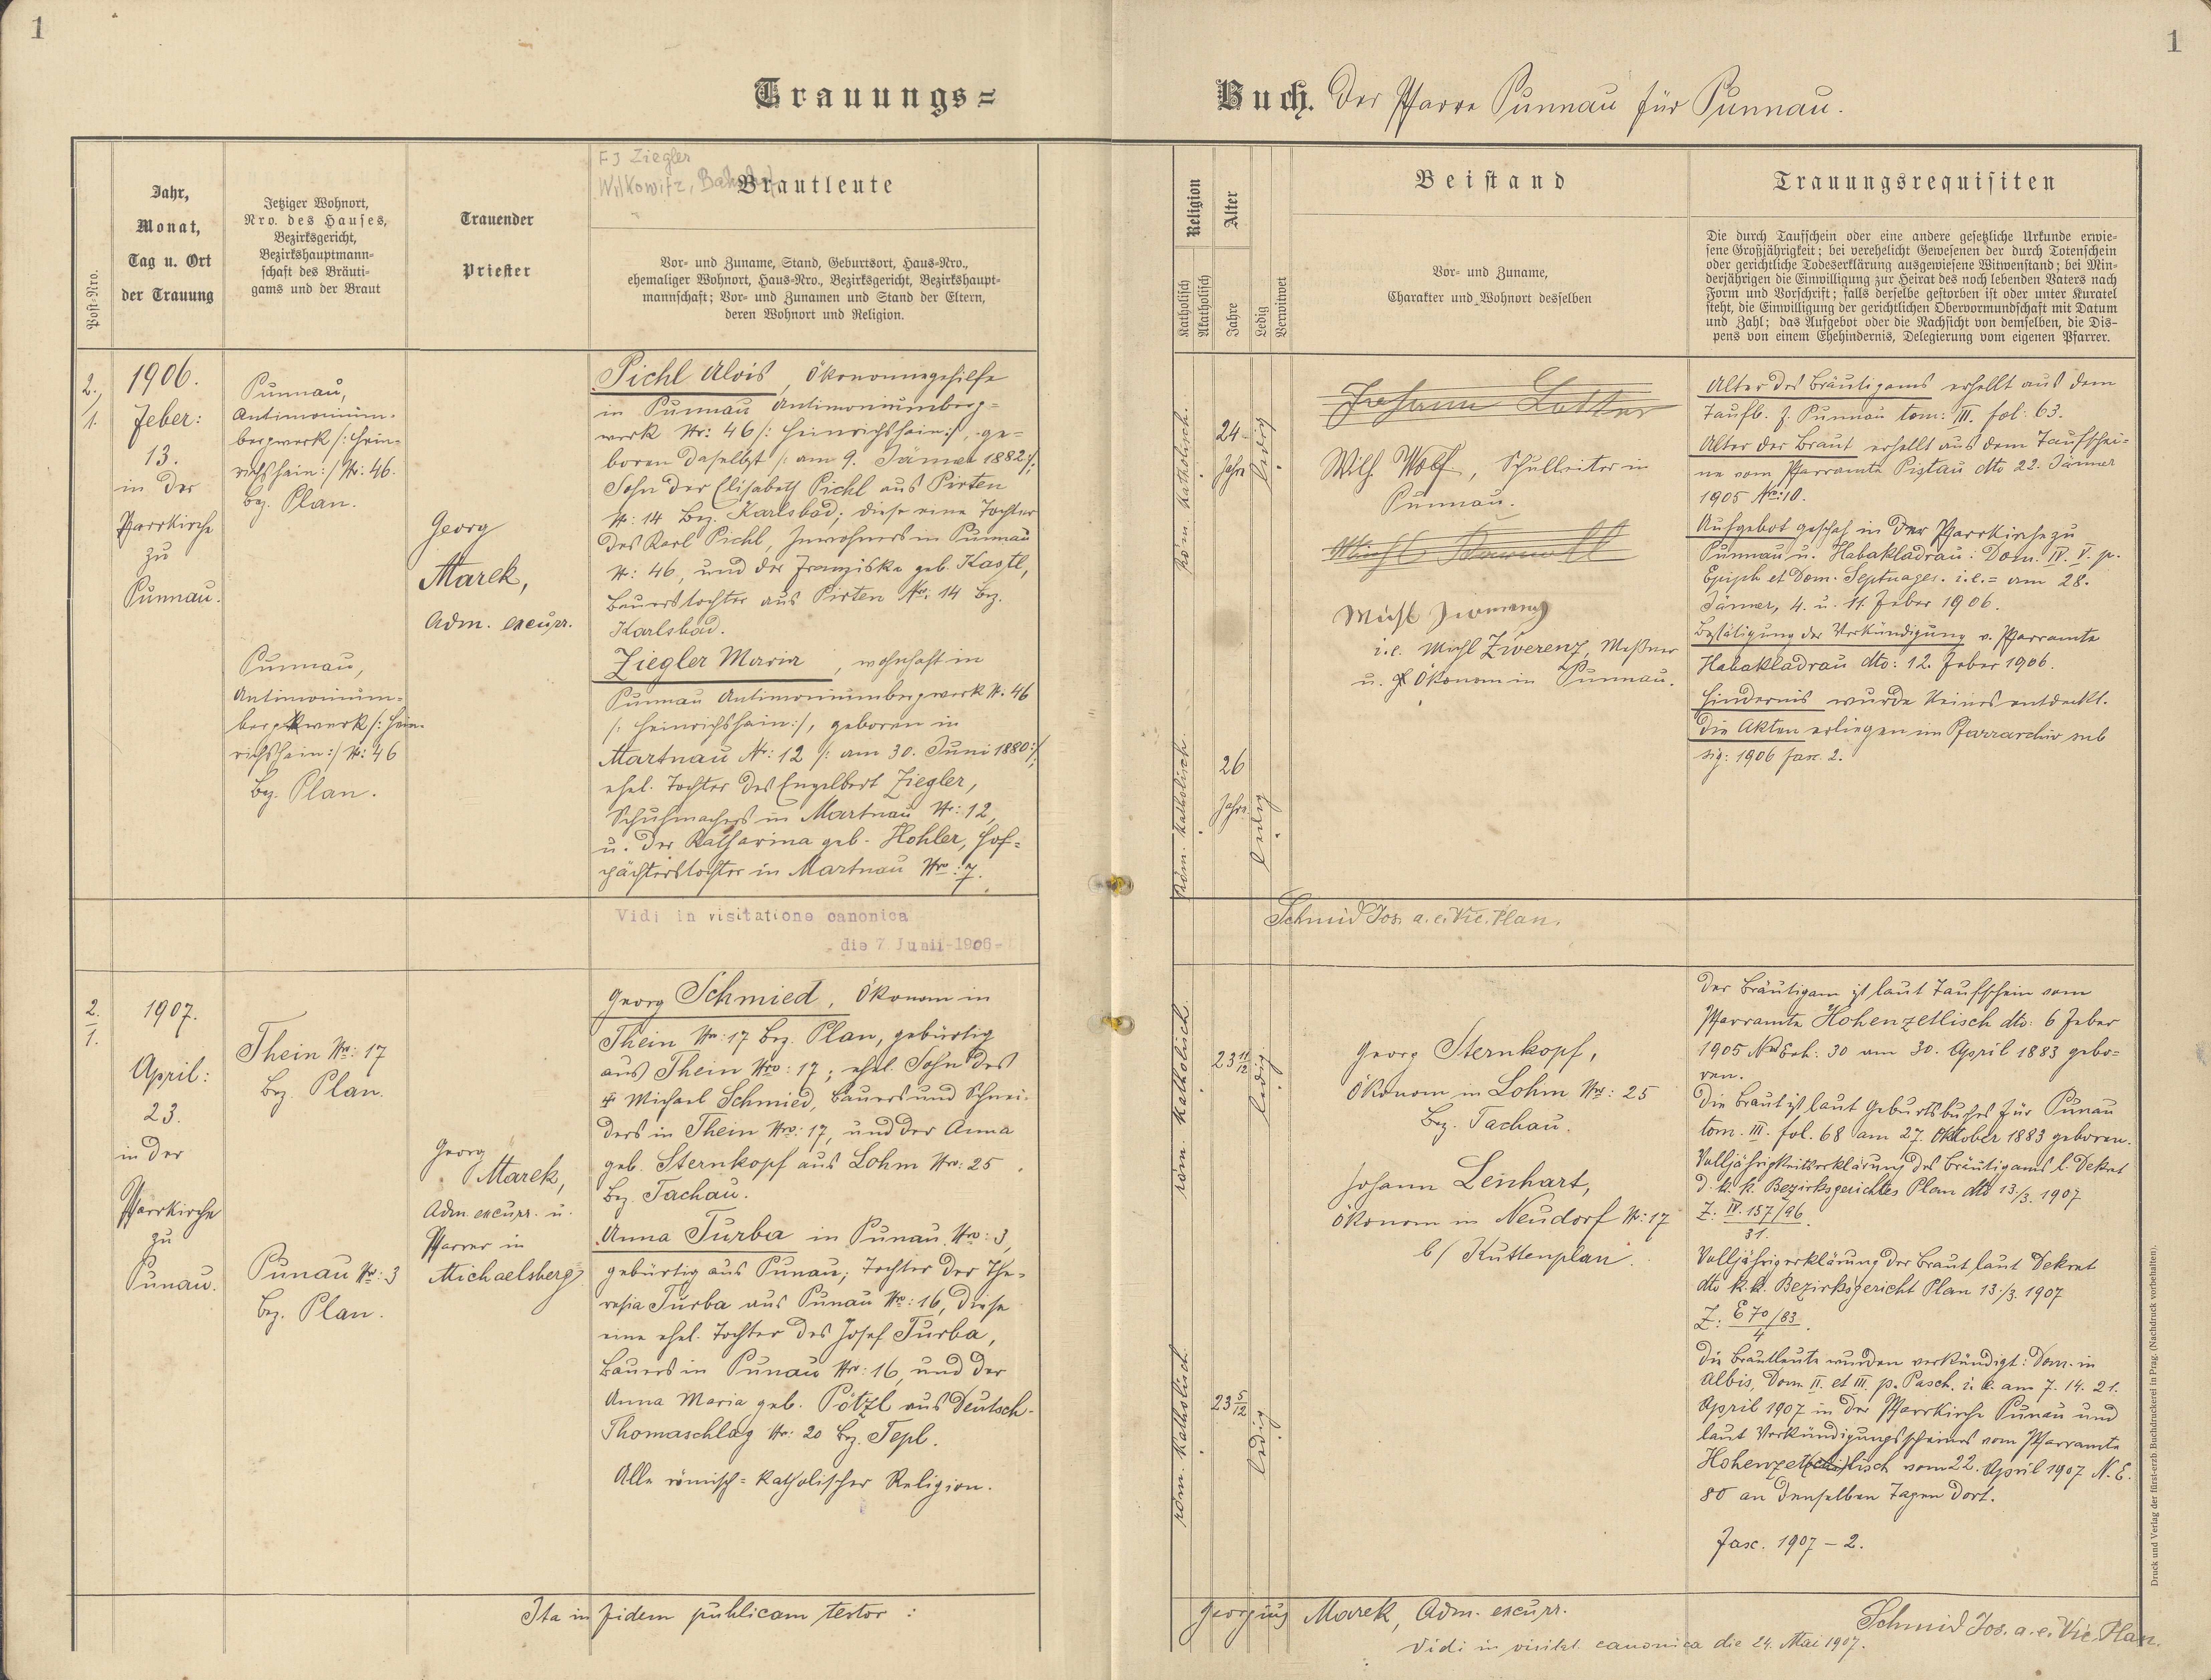 1
1
Trauungs=
Buch. Der Pfarre Punnau für Punnau.
Post-Nro.
Jahr,
Monat,
Tag u. Ort
der Trauung
Jetziger Wohnort,
Nro. des Hauses,
Bezirksgericht,
Bezirkshauptmann=
schaft des Bräuti=
gams und der Braut
Trauender
Priester
FJ Ziegler
Wilkowitz,
Brautleute
Vor- und Zuname, Stand, Geburtsort, Haus-Nro.,
ehemaliger Wohnort, Haus-Nro., Bezirksgericht, Bezirkshaupt=
mannschaft; Vor- und Zunamen und Stand der Eltern,
deren Wohnort und Religion.
Religion
Katholisch
Akatholisch
Alter
Jahre
Ledig
Verwitwet
Beistand
Vor- und Zuname,
Charakter und Wohnort desselben
Trauungsrequisiten
Die durch Taufschein oder eine andere gesetzliche Urkunde erwie=
sene Großjährigkeit; bei verehelicht Gewesenen der durch Totenschein
oder gerichtliche Todeserklärung ausgewiesene Witwenstand; bei Min=
derjährigen die Einwilligung zur Heirat des noch lebenden Vaters nach
Form und Vorschrift; falls derselbe gestorben ist oder unter Kuratel
steht, die Einwilligung der gerichtlichen Obervormundschaft mit Datum
und Zahl; das Aufgebot oder die Nachsicht von demselben, die Dis=
pens von einem Ehehindernis, Delegierung vom eigenen Pfarrer.
2.,
1.
1906.
Feber:
13.
in der
Pfarrkirche
zu
Punnau.
Punnau,
Antimonium=
bergwerk /: Hein=
richshain :/ Nr: 46.
Bez. Plan.
Punnau,
Antimonium=
bergwerk /: Hein=
richshain :/ Nr: 46
Bez. Plan.
Georg
Marek,
Adm. excurr.
Pichl Alois, Ökonomiegehilfe
in Punnau Antimoniumberg=
werk Nr: 46 /: Heinrichshain :/, ge=
boren daselbst /: am 9. Jänner 1882 :/;
Sohn der Elisabeth Pichl aus Pirten
Nr: 14 Bez. Karlsbad; diese eine Tochter
des Karl Pichl, Inwohners in Punnau
Nr: 46, und der Franziska geb. Kastl,
Bauerstochter aus Pirten Nr: 14 Bez.
Karlsbad.
Ziegler Maria, wohnhaft in
Punnau Antimoniumbergwerk Nr. 46
/: Heinrichshain :/, geboren in
Martnau Nr: 12 /: am 30. Juni 1880 :/,
ehel. Tochter des Engelbert Ziegler,
Schuhmachers in Martnau Nr: 12,
u. der Katharina geb. Hohler, Hof=
pächterstochter in Martnau Nro: 7.
röm. katholisch.
24
Jahre
ledig
röm. katholisch.
26
Jahre
ledig
Johann Lotter
Wilh. Wolf, Schulleiter in
Punnau.
i.e. Michl Zwerenz, Meßner
u. Ökonom in Punnau.
Alter des Bräutigams erhellt aus dem
Taufb. f. Punnau tom: III. fol: 63.
Alter der Braut erhellt aus dem Taufschei=
ne vom Pfarramte Pistau dto 22. Jänner
1905 Nr: 10.
Aufgebot geschah in der Pfarrkirche zu
Punnau u. Habakladrau: Dom. IV. V. p.
Epiph et Dom. Septuages. i.e. = am 28.
Jänner, 4. u. 11. Feber 1906.
Bestätigung der Verkündigung v. Pfarramte
Habakladrau dto: 12. Feber 1906.
Hindernis wurde keines entdeckt.
Die Akten erliegen im Pfarrarchiv sub
sig: 1906 fasc. 2.
Vidi in visitatione canonica
die 7 Junii-1906-
Schmid Jos. a.e. Vic. Plan.
2.
1.
1907.
April:
23.
in der
Pfarrkirche
zu
Punau.
Thein Nr: 17
Bez. Plan.
Punau Nr: 3
Bez. Plan.
Georg
Marek,
Adm. excurr. u.
Pfarrer in
Michaelsberg
Georg Schmied, Ökonom in
Thein Nr: 17 Bez. Plan, gebürtig
aus Thein Nro: 17; ehel. Sohn des
Michael Schmied, Bauers und Schnei=
ders in Thein Nro: 17, und der Anna
geb. Sternkopf aus Lohm Nro: 25
Bez. Tachau.
Anna Turba in Punau Nro: 3,
gebürtig aus Punau; Tochter der The=
resia Turba aus Punau Nr: 16, diese
eine ehel. Tochter des Josef Turba,
Bauers in Punau Nr: 16, und der
Anna Maria geb. Pötzl aus Deutsch-
Thomaschlag Nr: 20 Bez. Tepl.
Alle römisch=katholischer Religion.
röm. katholisch.
23 11/12
ledig
röm. katholisch.
23 5/12
ledig
Georg Sternkopf,
Ökonom in Lohm Nr: 25
Bez. Tachau.
Johann Lenhart,
Ökonom in Neudorf Nr: 17
b/ Kuttenplan.
Der Bräutigam ist laut Taufschein vom
Pfarramte Hohenzetlisch dto: 6 Feber
1905 Exh: 30 am 30. April 1883 gebo=
ren.
Die Braut ist laut Geburtsbuches für Punau
tom. III. fol. 68 am 27. Oktober 1883 geboren.
Volljährigkeitserklärung des Bräutigams l. Dekret
d. k. k. Bezirksgerichtes Plan dto 13./3. 1907
Z: IV. 157/96
31.
Volljährigerklärung der Braut laut Dekret
dto k.k. Bezirksgericht Plan 13./3. 1907
Z: E 70/83
4
Die Brautleute wurden verkündigt: Dom. in
Albis, Dom. II. et III. p. Pasch. i. e. am 7. 14. 21.
April 1907 in der Pfarrkirche Punau und
laut Verkündigungsscheines vom Pfarramte
Hohenzetlisch vom 22. April 1907 N. E.
80 an denselben Tagen dort.
Fasc. 1907 – 2.
Ita in fidem publicam testor:
Georgius Marek, Adm. excurr.
Vidi in visitat. canonica die 24. Mai 1907.
Schmid Jos. a.e. Vic. Plan.
Druck und Verlag der fürst-erzb. Buchdruckerei in Prag. (Nachdruck vorbehalten).